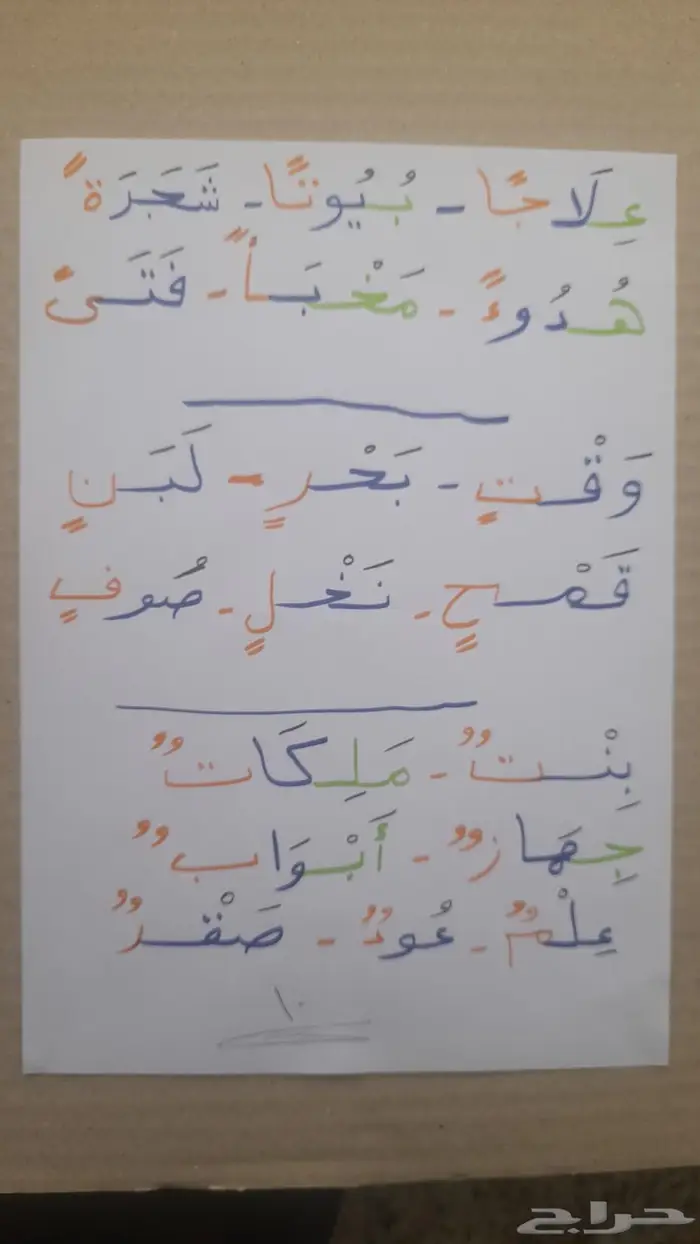 عِلَاجًا - بُيُوتًا - شَجَرَةً
هُدُوءً - مَخْبَأً - فَتَىً
وَقْتٍ - بَحْرٍ - لَبَنٍ
قَمْحٍ - نَخْلٍ - صُوفٍ
بِنْتٌ - مَلِكَاتٌ
جِهَازٌ - أَبْوَابٌ
عِلْمٌ - عُودٌ - صَقْرٌ
١٠
حراج